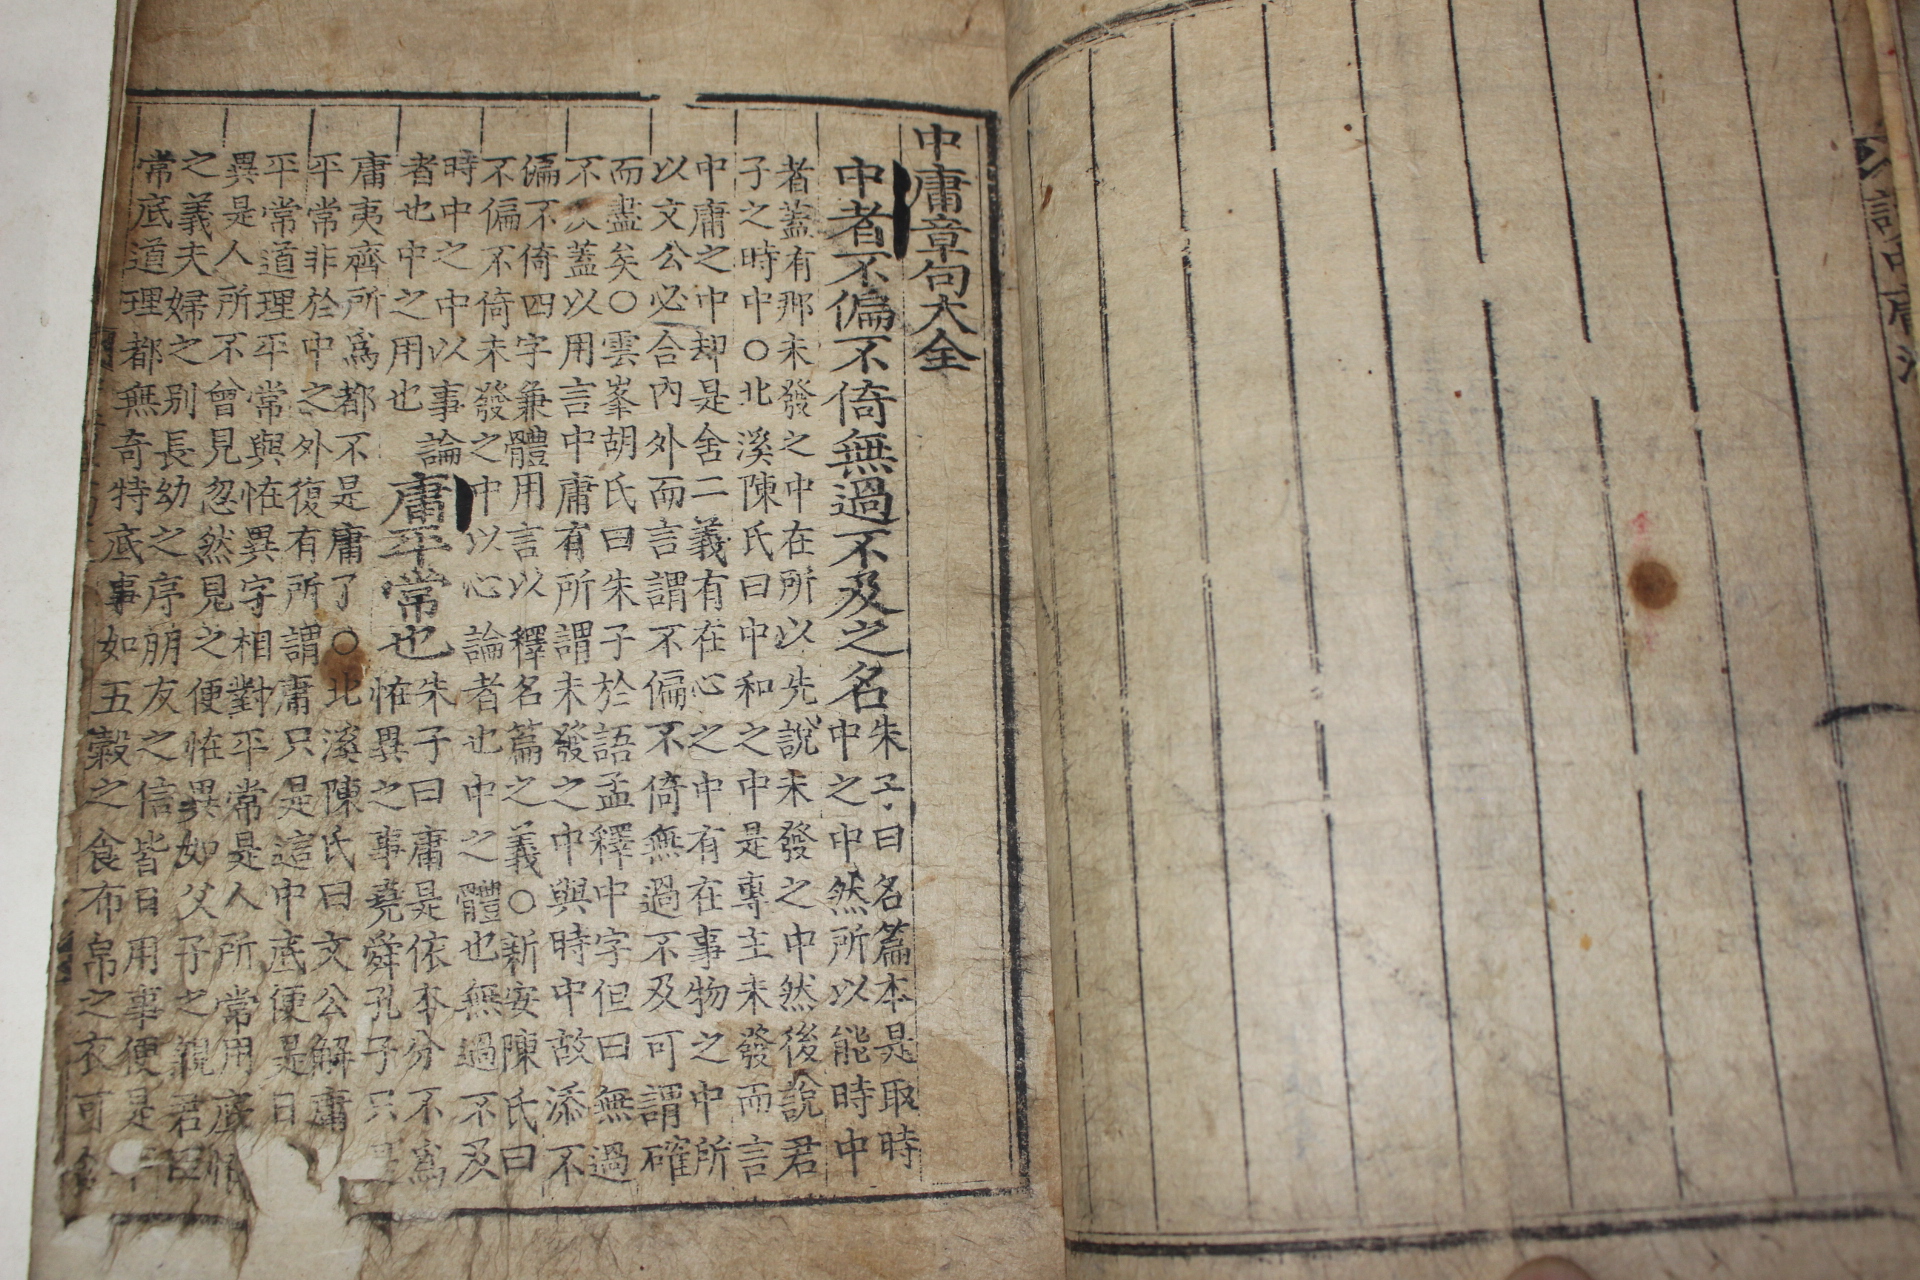 讀中庸法
中庸章句大全
中者不偏不倚無過不及之名
朱子曰名篇本是取時
中之中然所以能時中
者蓋有那未發之中在所以先說未發之中然後說君
子之時中○北溪陳氏曰中和之中是專主未發而言
中庸之中却是含二義有在心之中有在事物之中所
以文公必合內外而言謂不偏不倚無過不及可謂確
而盡矣○雲峯胡氏曰朱子於語孟釋中字但曰無過
不及蓋以用言中庸有所謂未發之中與時中故添不
偏不倚四字兼體用言以釋名篇之義○新安陳氏曰
不偏不倚未發之中以心論者也中之體也無過不及
時中之中以事論
者也中之用也
庸平常也
朱子曰庸是依本分不爲
恠異之事堯舜孔子只是
庸夷齊所爲都不是庸了○北溪陳氏曰文公解庸
平常非於中之外復有所謂庸只是這中底便是日
平常道理平常與恠異字相對平常是人所常用底恠
異是人所不曾見忽然見之便恠異如父子之親君臣
之義夫婦之別長幼之序朋友之信皆日用事便是平
常底道理都無奇特底事如五穀之食布帛之衣可